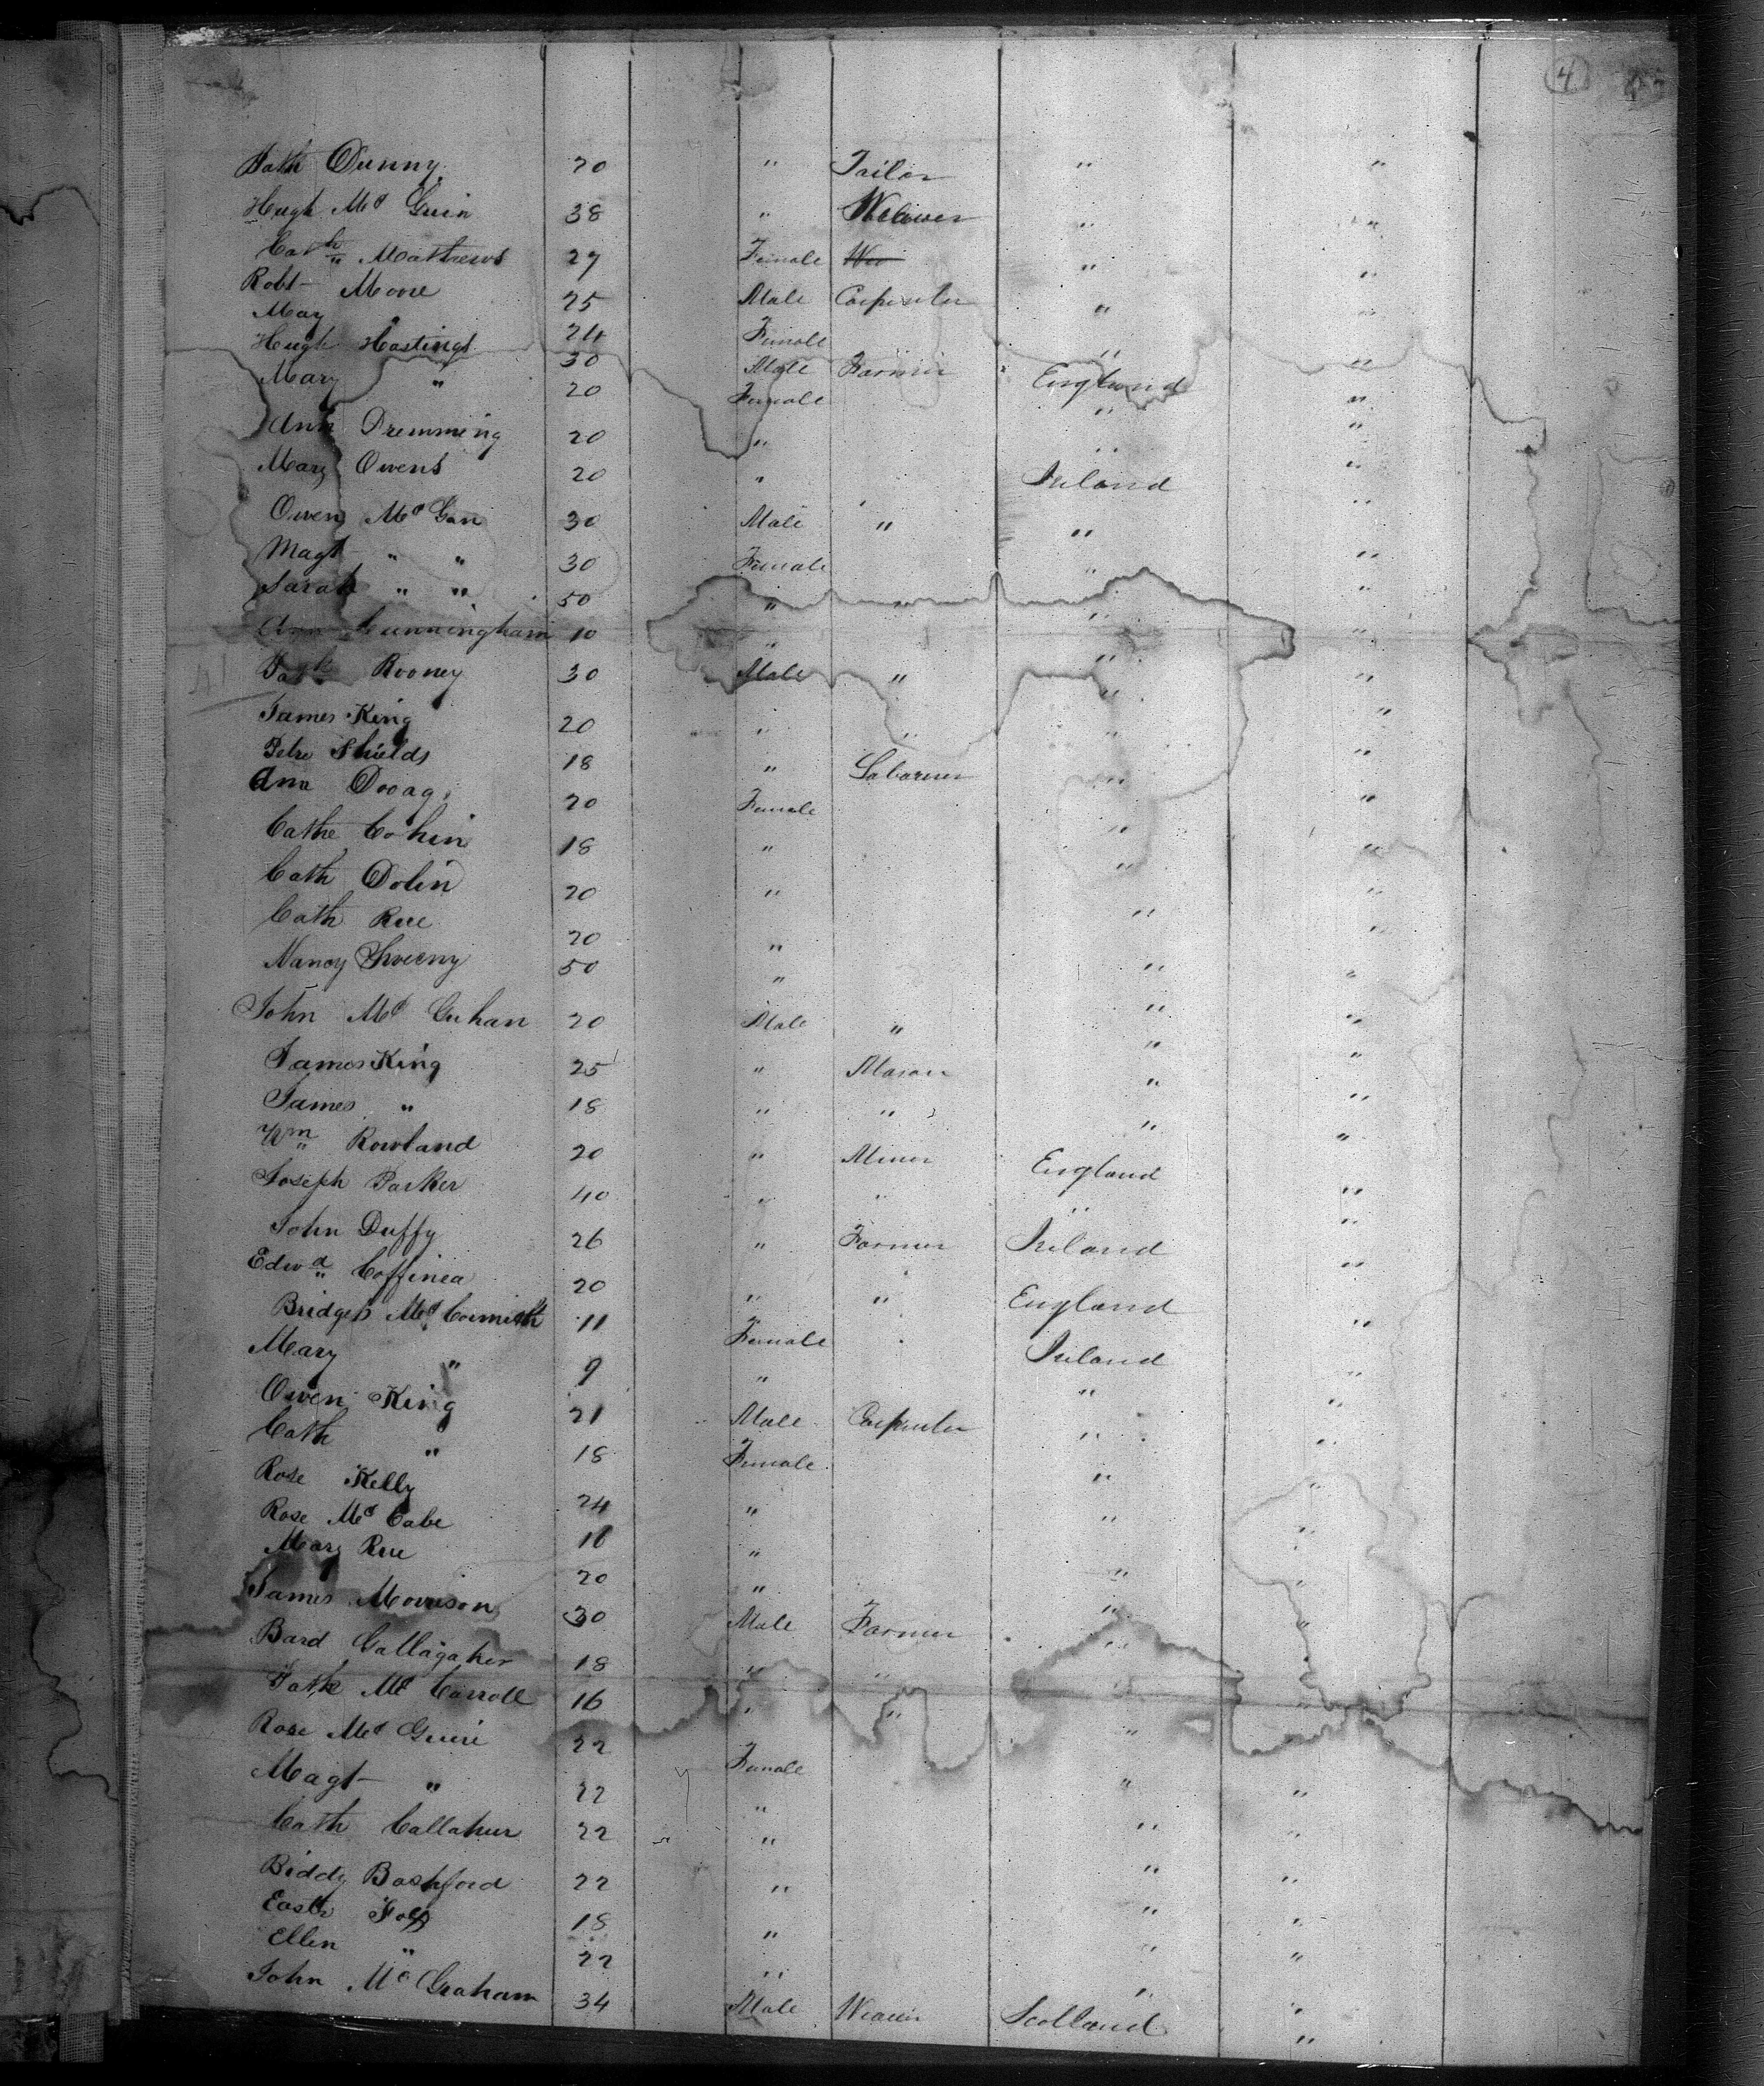 4
Path Dunny 20 " Tailor " "
Hugh Mc Guin 38 " Weaver " "
Cath Mathews 27 Female Wea " "
Robt Moore 25 Male Carpenter " "
May " 24 Female " "
Hugh Hastings 30 Male Farmer England "
Mary " 20 Female " "
Ann Dremming 20 " " "
Mary Owens 20 " Ireland "
Owen Mc Gan 30 Male " " "
Magt " " 30 Female " "
Sarah " " 50 " " " "
Ann Cunningham 10 " " "
Patk Rooney 30 Male " " "
James King 20 " " " "
Petre Shields 18 " Labourer " "
Ann Dooag 20 Female " "
Cathe Cohin 18 " " "
Cath Dolin 20 " " "
Cath Rue 20 " " "
Nancy Sweeny 50 " " "
John Mc Guhan 20 Male " " "
James King 25 " Mason " "
James " 18 " " " "
Wm Rowland 20 " Miner England "
Joseph Parker 40 " " " "
John Duffy 26 " Farmer Ireland "
Edwd Coffinea 20 " " England "
Bridget Mc Cormick 11 Female Ireland "
Mary " 9 " " "
Owen King 21 Male Carpenter " "
Cath " 18 Female " "
Rose Kelly 24 " " "
Rose Mc Cabe 16 " " "
Mary Rue 20 " " "
James Morrison 30 Male Farmer " "
Bard Gallagaher 18 " " " "
Patk Mc Carroll 16 " " " "
Rose Mc Guire 22 Female "
Magt " 22 " " "
Cath Callahur 22 " " "
Biddy Bashford 22 " " "
Easter Foly 18 " " "
Ellen " 22 " " "
John Mc Graham 34 Male Weaver Scotland "